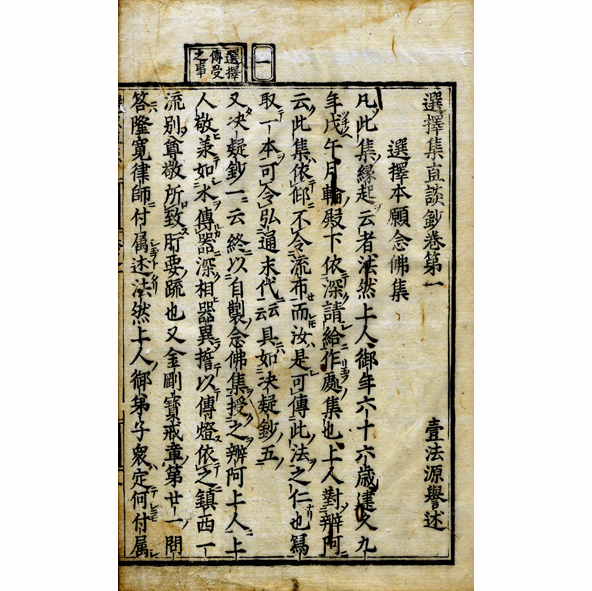 選擇集直談鈔卷第一　壹法源譽述
選擇本願念佛集
凡此集縁起云者法然上人御年六十六歳建久九
年戊午月輪殿下依深請給作處集也上人對辨阿
云此集依仰不令流布而汝是可傳此法之仁也寫
取一本可令弘通末代云云具如决疑鈔五
又决疑鈔一云終以自製念佛集授之辨阿上人上
人敬兼如水傳器深相器異擔以傳燈依之鎮西一
流别尊敬所致肝要䟽也又金剛寳戒章第廿一問
答隆寛律師付属述法然上人御弟子衆定何付属
一
選擇
傳受
之事